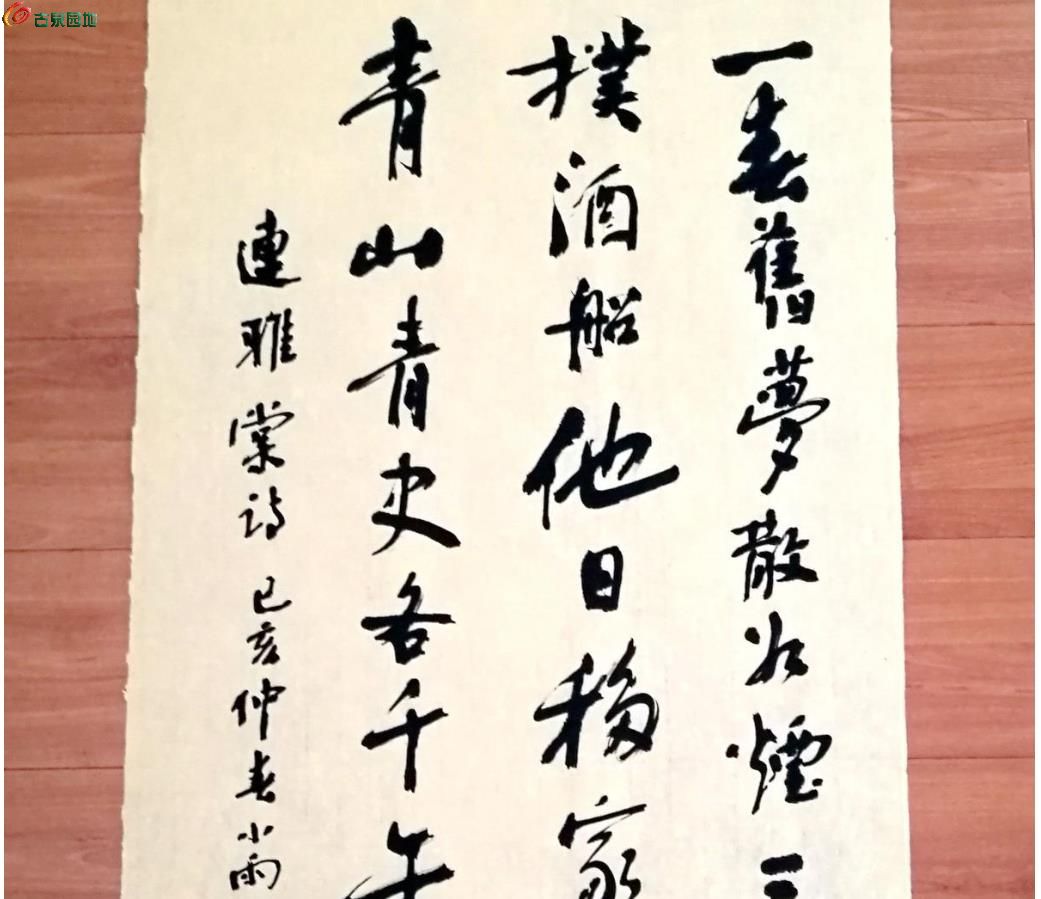 古泉园地
一春舊夢散如煙三
撲酒船他日移家
青山青史各千年
連雅棠詩 己亥仲春小雨